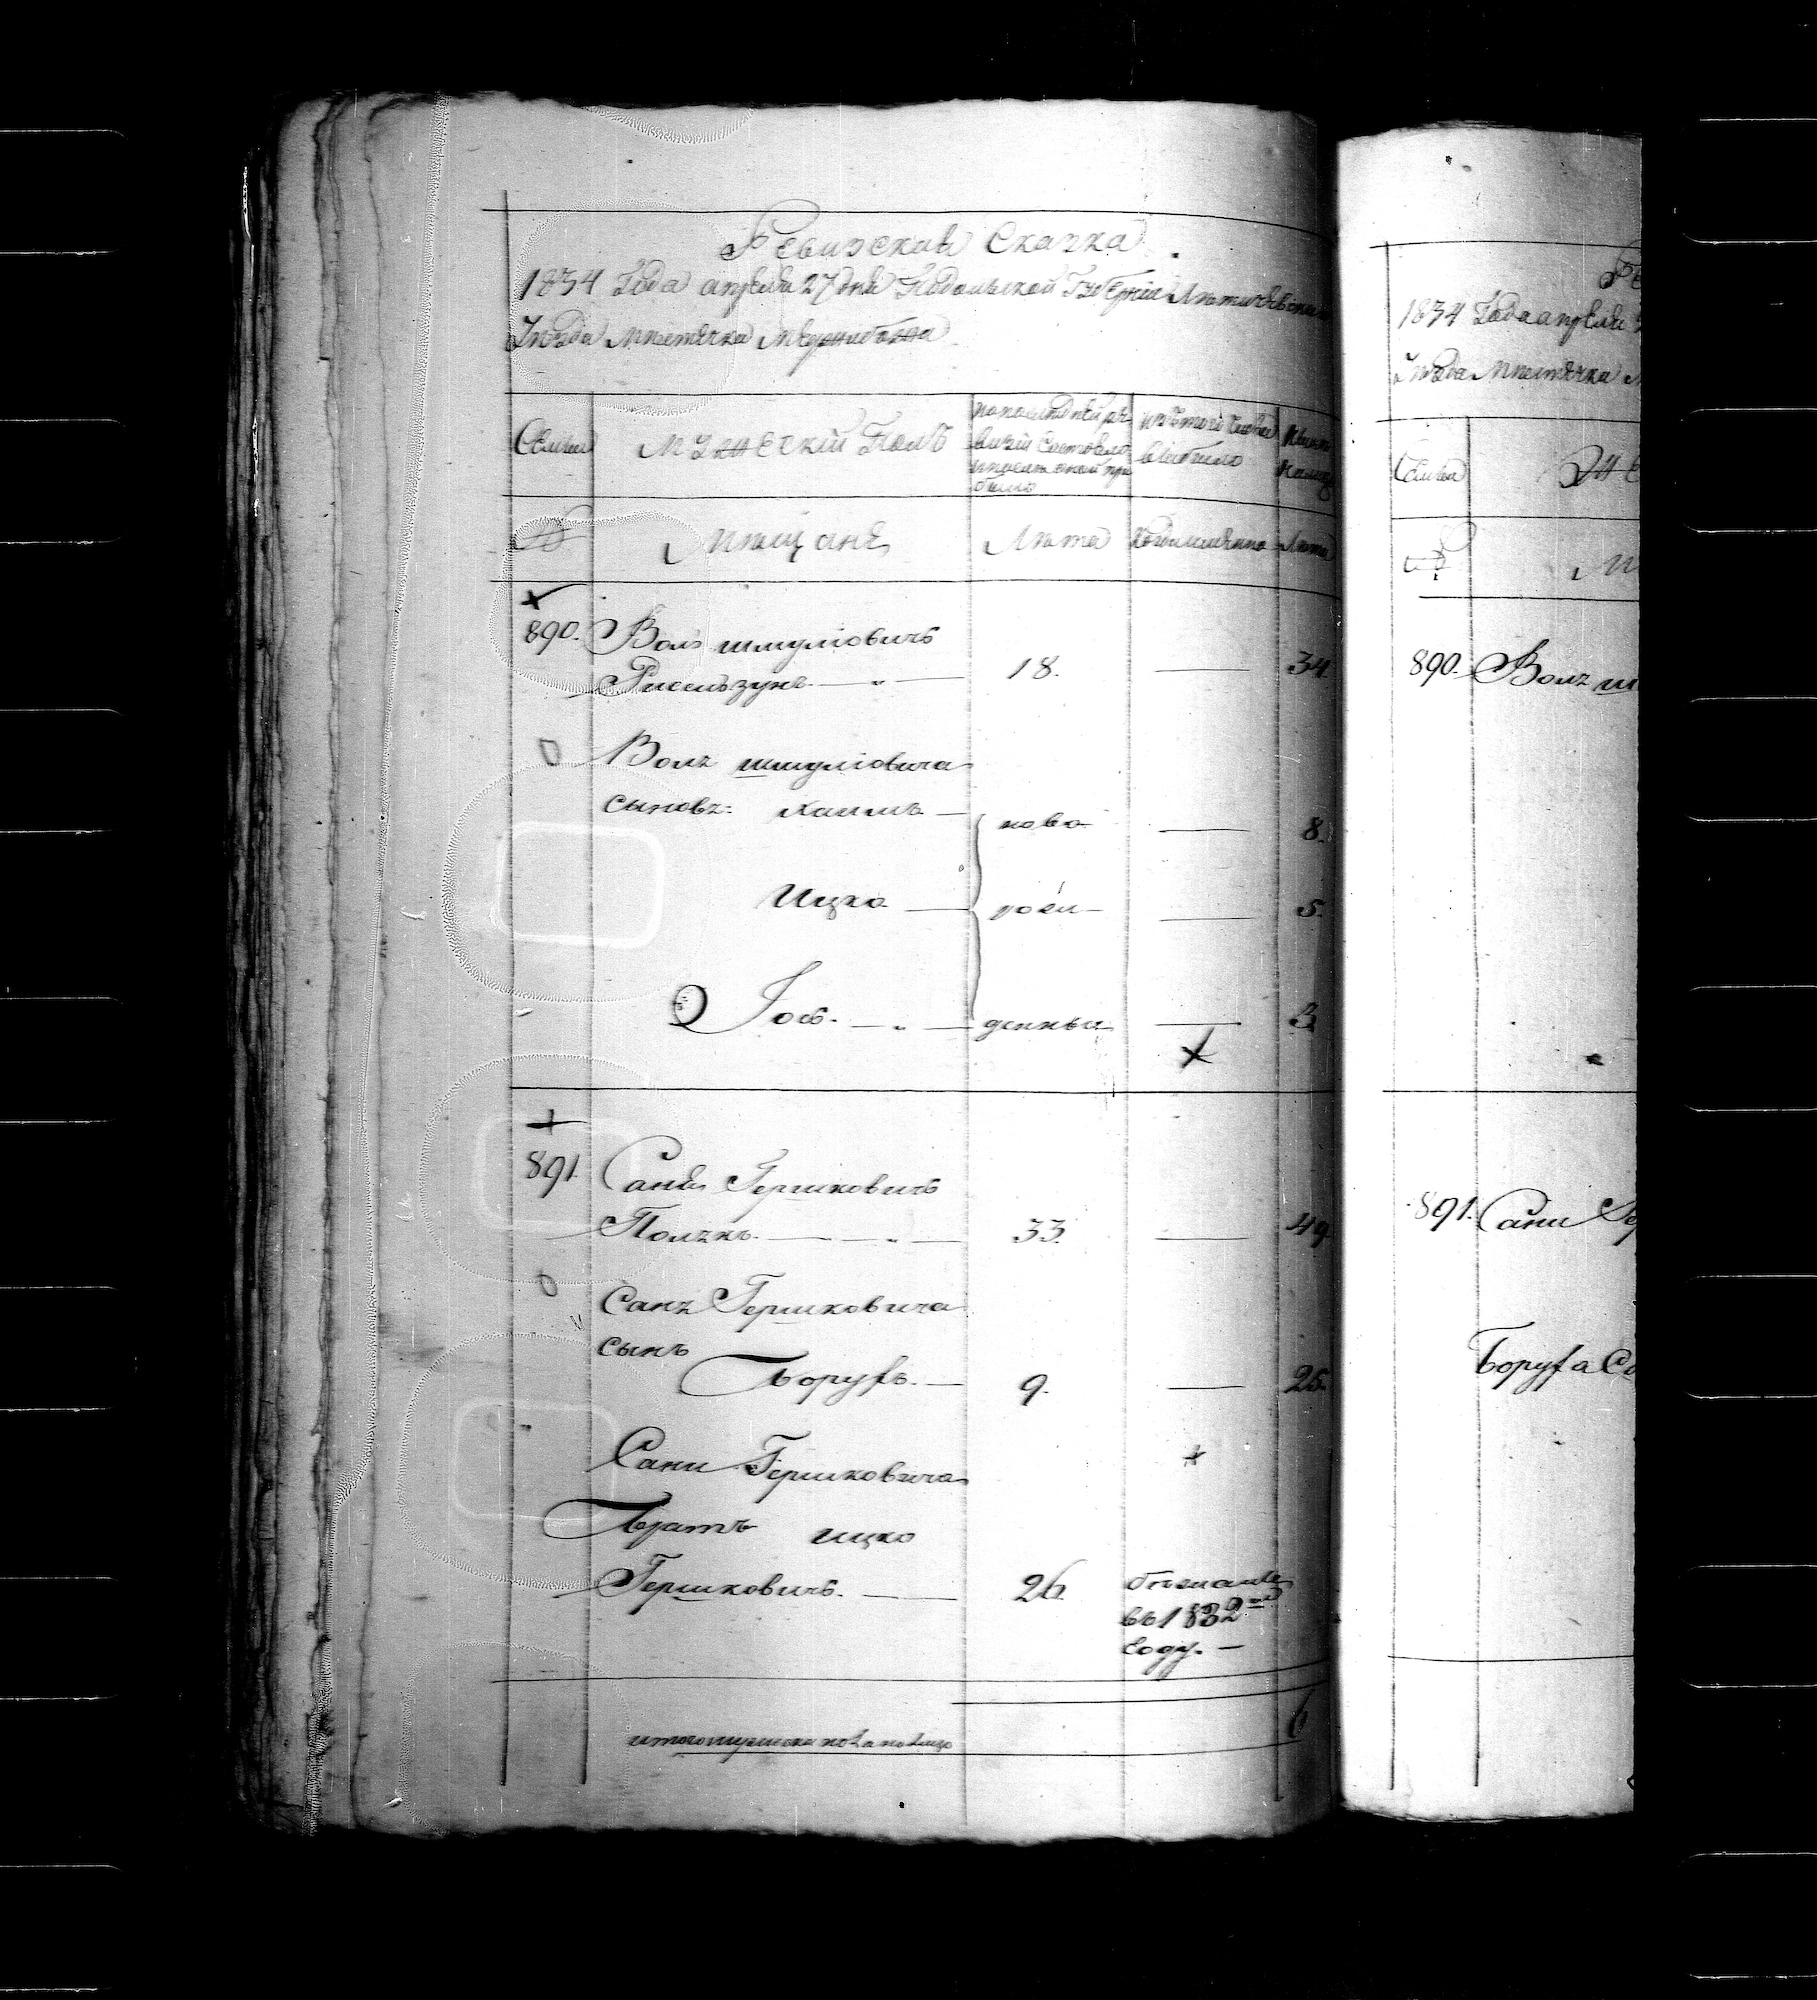 Ревизская Сказка
1834 Года апреля 27 дня Подольской Губернии Летичевскаго
Уезда местечка Меджибожа
Семьи
Мужеский Полъ
по последней ре
визіи состояло
и после оной при
было
изъ того числа
выбыло
ныне
на лицо
№
Мещане
Лета
Когда именно
Лета
890. Волъ Шмулiовичъ
18. 34
Волъ Шмулiовича
сыновъ: Хаимъ
ново 8.
Ицко рожд 5.
Iос. денныя 3
891. Саня Гершковичъ
Полякъ. 33. 49
Санъ Гершковича
сынъ
Борухъ. 9. 25.
Сани Гершковича
братъ Ицко
Гершковичъ. 26.
въ 1832мъ
году.
итого мужеска пола на лицо 6
1834 Года апреля
Уезда местечка
Семьи
890. Волъ
891. Сани
Боруха